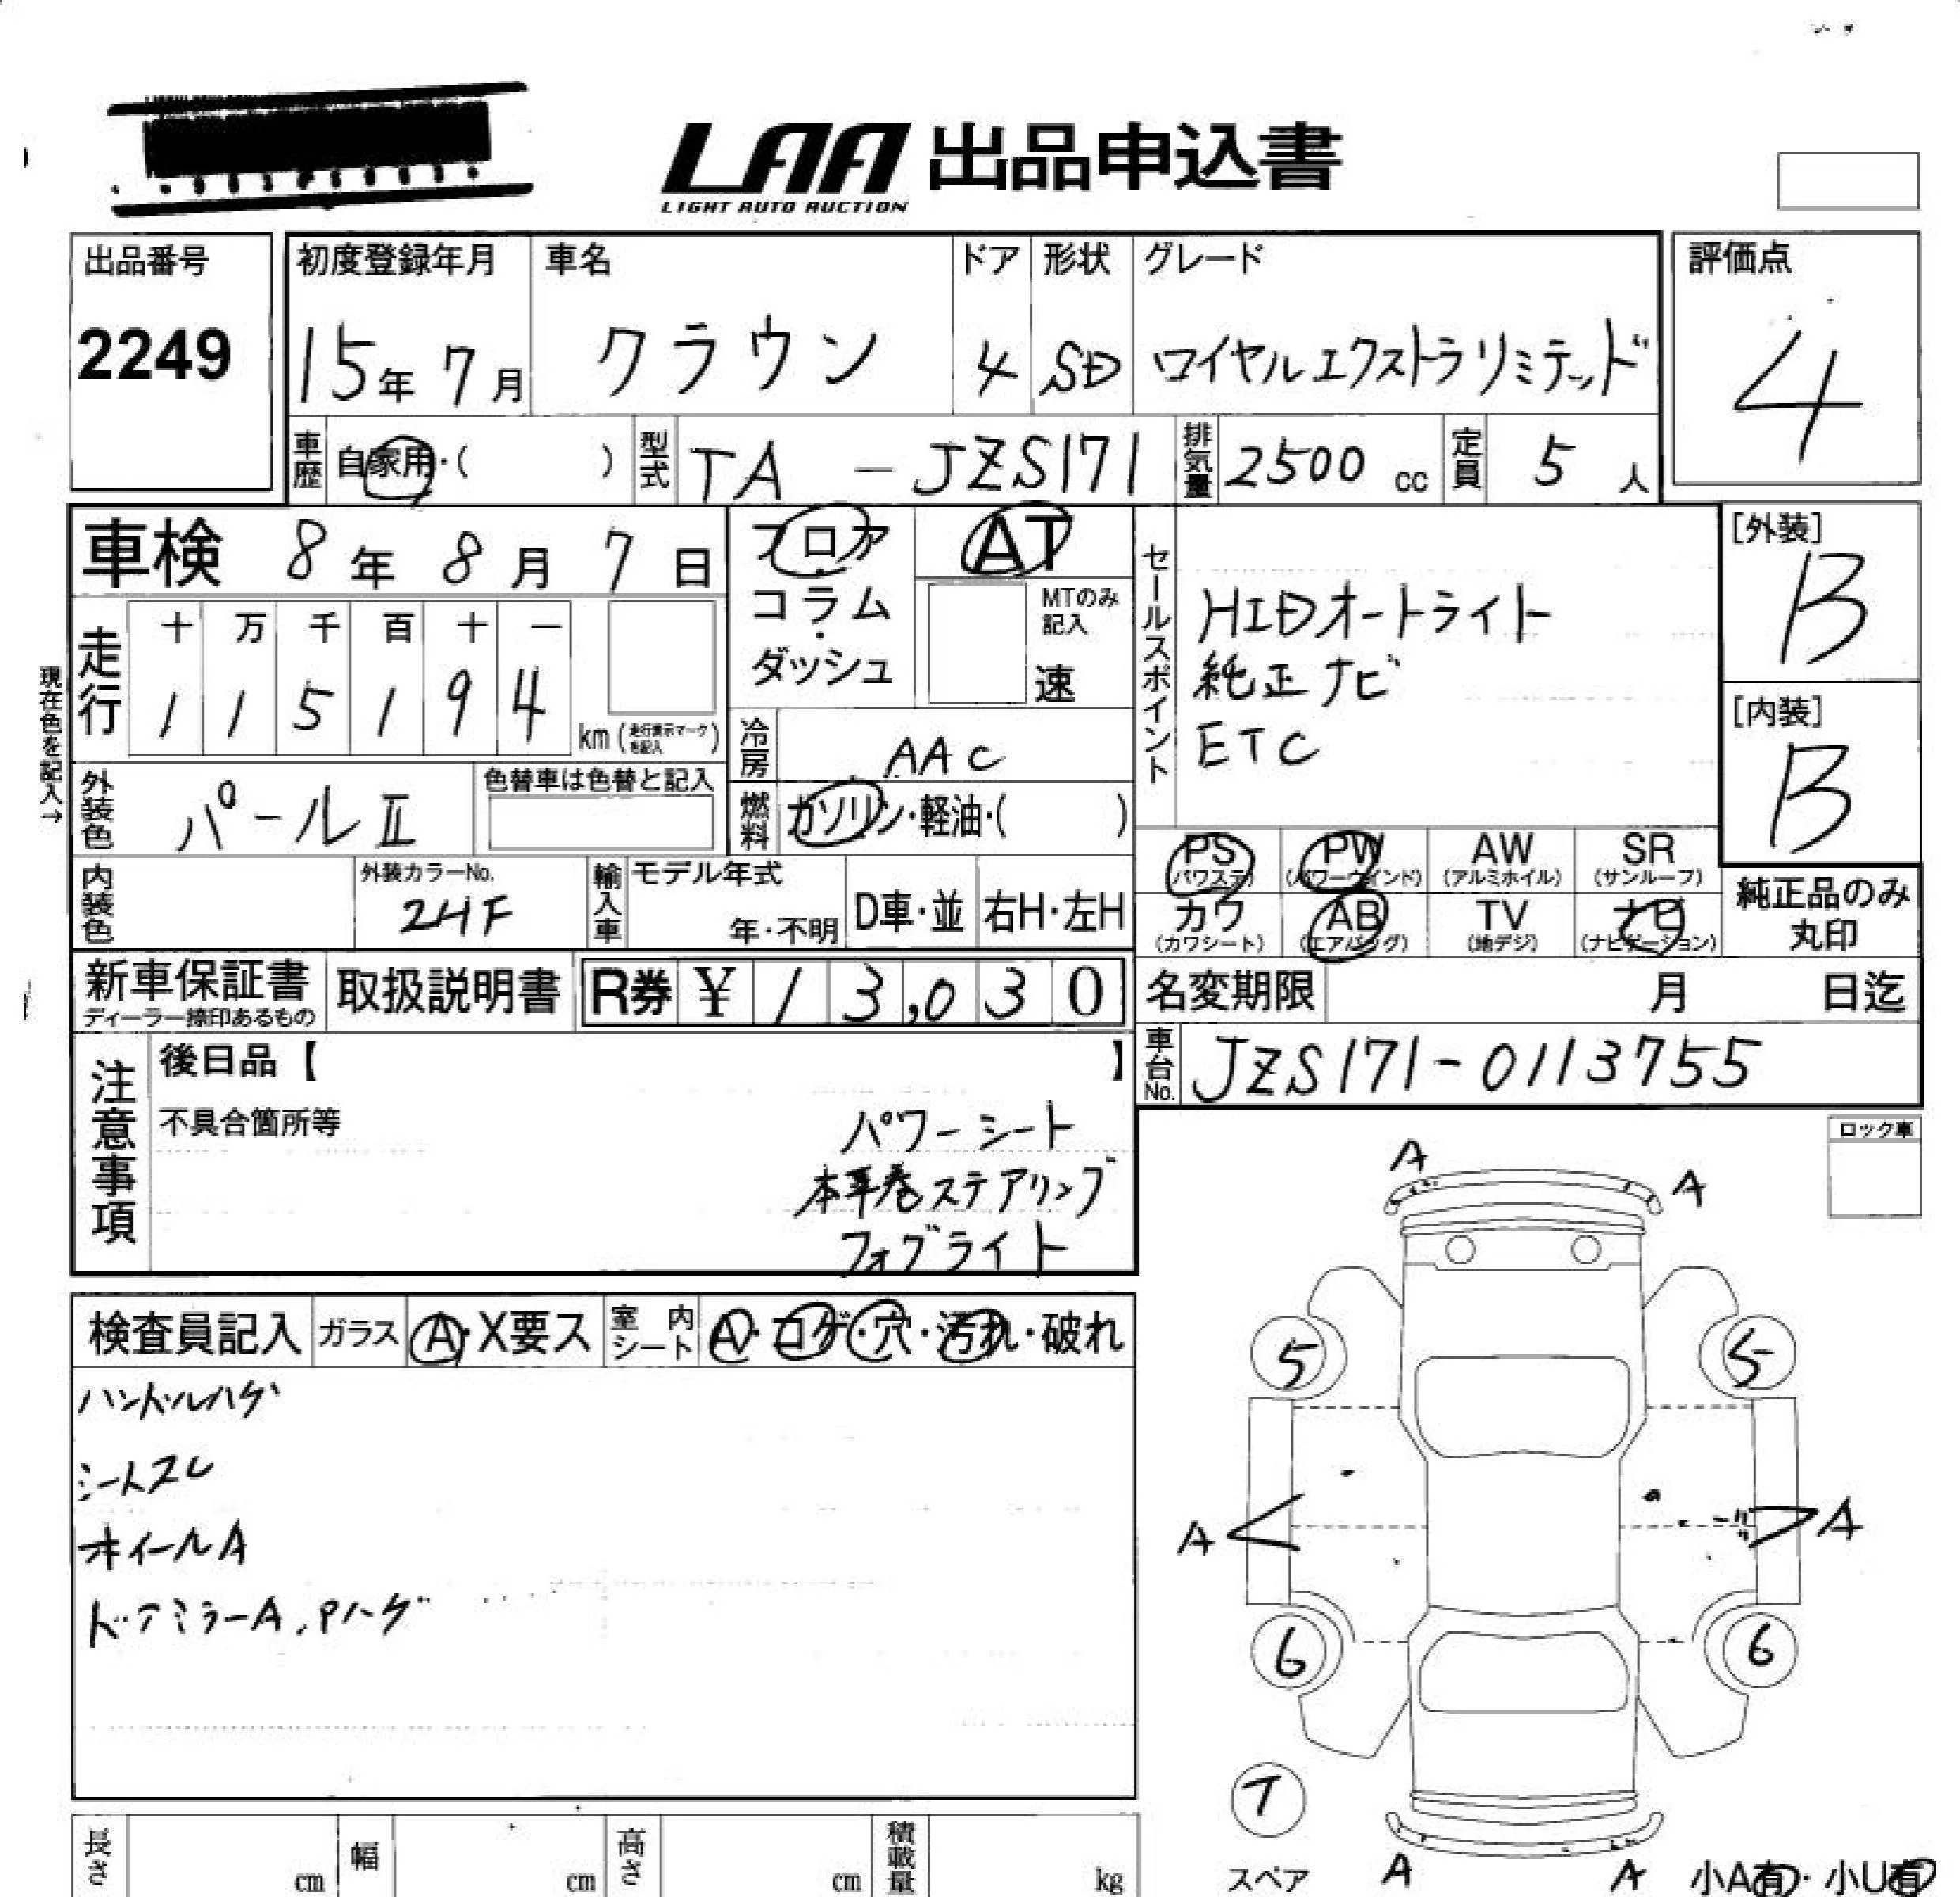 LAA 出品申込書
LIGHT AUTO AUCTION
出品番号
2249
初度登録年月
15年 7月
車名
クラウン
ドア
4
形状
SD
グレード
ロイヤルエクストラリミテッド
評価点
4
車歴
自家用・( )
型式
TA - JZS171
排気量
2500 cc
定員
5 人
車検 8年 8月 7日
現在色を記入→
走行
十 万 千 百 十 一
1 1 5 1 9 4
km(走行表示マークを記入)
フロア
・
コラム
・
ダッシュ
AT
MTのみ
記入
速
セールスポイント
HIDオートライト
純正ナビ
ETC
[外装]
B
[内装]
B
外装色
パールⅡ
色替車は色替と記入
冷房
AAC
燃料
ガソリン・軽油・( )
内装色
外装カラーNo.
24F
輸入車
モデル年式
年・不明
D車・並
右H・左H
PS
(パワステ)
PW
(パワーウインド)
AW
(アルミホイル)
SR
(サンルーフ)
カワ
(カワシート)
AB
(エアバッグ)
TV
(地デジ)
ナビ
(ナビゲーション)
純正品のみ
丸印
新車保証書
ディーラー捺印あるもの
取扱説明書
R券 ¥ 13,030
名変期限 月 日迄
車台No.
JZS171-0113755
注意事項
後日品【 】
不具合箇所等
パワーシート
本革巻ステアリング
フォグライト
ロック車
検査員記入
ガラス
A・X要ス
室内シート
A・コゲ・穴・汚れ・破れ
ハンドルハゲ
シートスレ
ホイールA
ドアミラーA.Pハゲ
A
A
5
5
A
A
6
6
T
スペア
A
A
小A有・小U有
長さ
cm
幅
cm
高さ
cm
積載量
kg